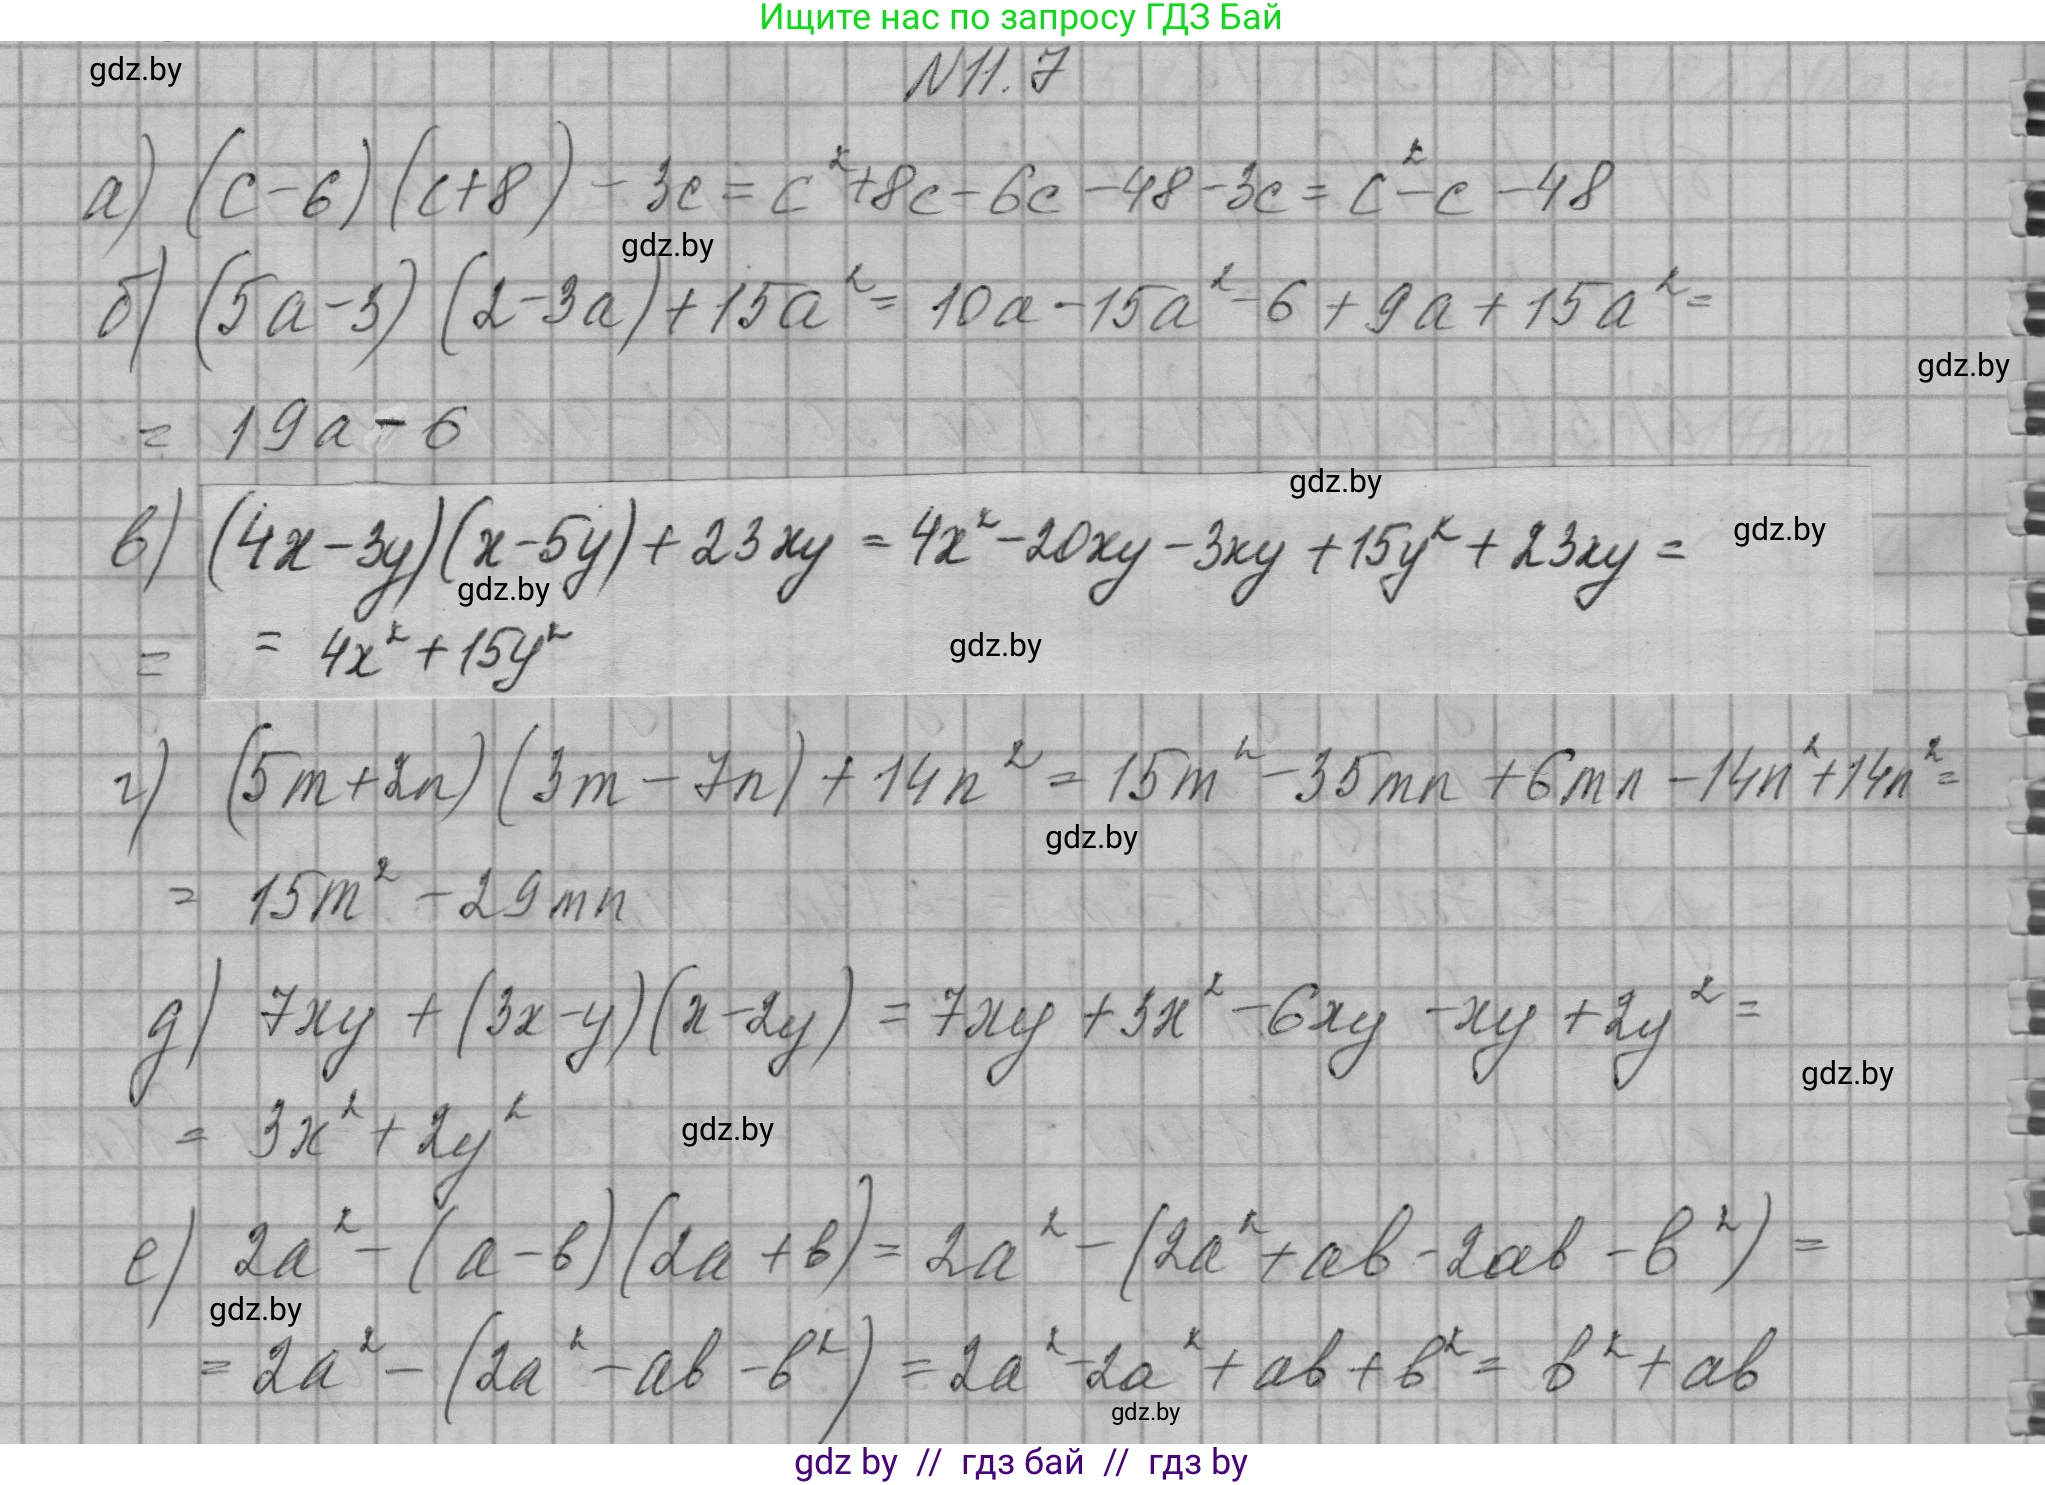 Ищите нас по запросу ГДЗ Бай
gdz.by
N11.7
а) (c-6)(c+8) - 3c = c²+8c-6c-48-3c = c²-c-48
gdz.by
б) (5a-3)(2-3a)+15a² = 10a-15a²-6+9a+15a² =
gdz.by
= 19a-6
gdz.by
в) (4x-3y)(x-5y)+23xy = 4x²-20xy-3xy+15y²+23xy =
gdz.by
gdz.by
= = 4x²+15y²
gdz.by
г) (5m+2n)(3m-7n)+14n² = 15m²-35mn+6mn-14n²+14n² =
gdz.by
= 15m²-29mn
д) 7xy+(3x-y)(x-2y) = 7xy+3x²-6xy-xy+2y² =
gdz.by
= 3x²+2y²
gdz.by
е) 2a²-(a-b)(2a+b) = 2a²-(2a²+ab-2ab-b²) =
gdz.by
= 2a²-(2a²-ab-b²) = 2a²-2a²+ab+b² = b²+ab
gdz.by
gdz by // гдз бай // гдз by